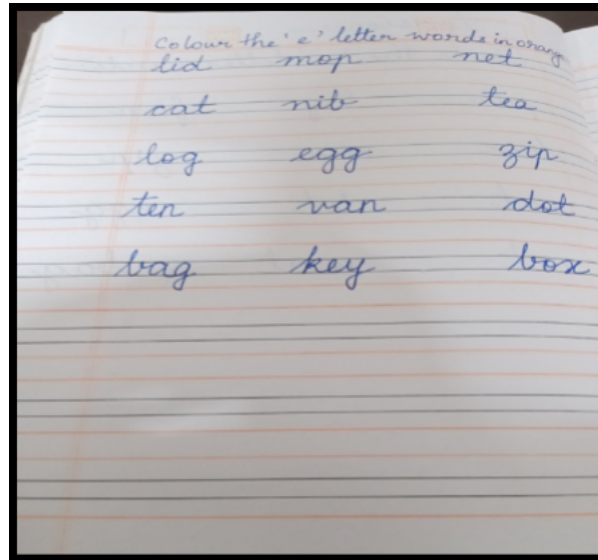 Colour the 'e' letter words in orang
lid mop net
cat nib tea
log egg zip
ten van dot
bag key box